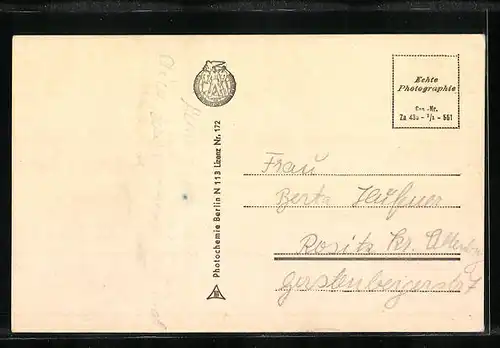 Echte
Photographie
Gen.-Nr.
Za 43a - 1/1 - 551
Photochemie Berlin N 113 Lizenz Nr. 172
Frau
Berta
Rositz Kr. Altenbg.
Gerstenbergerstr 7